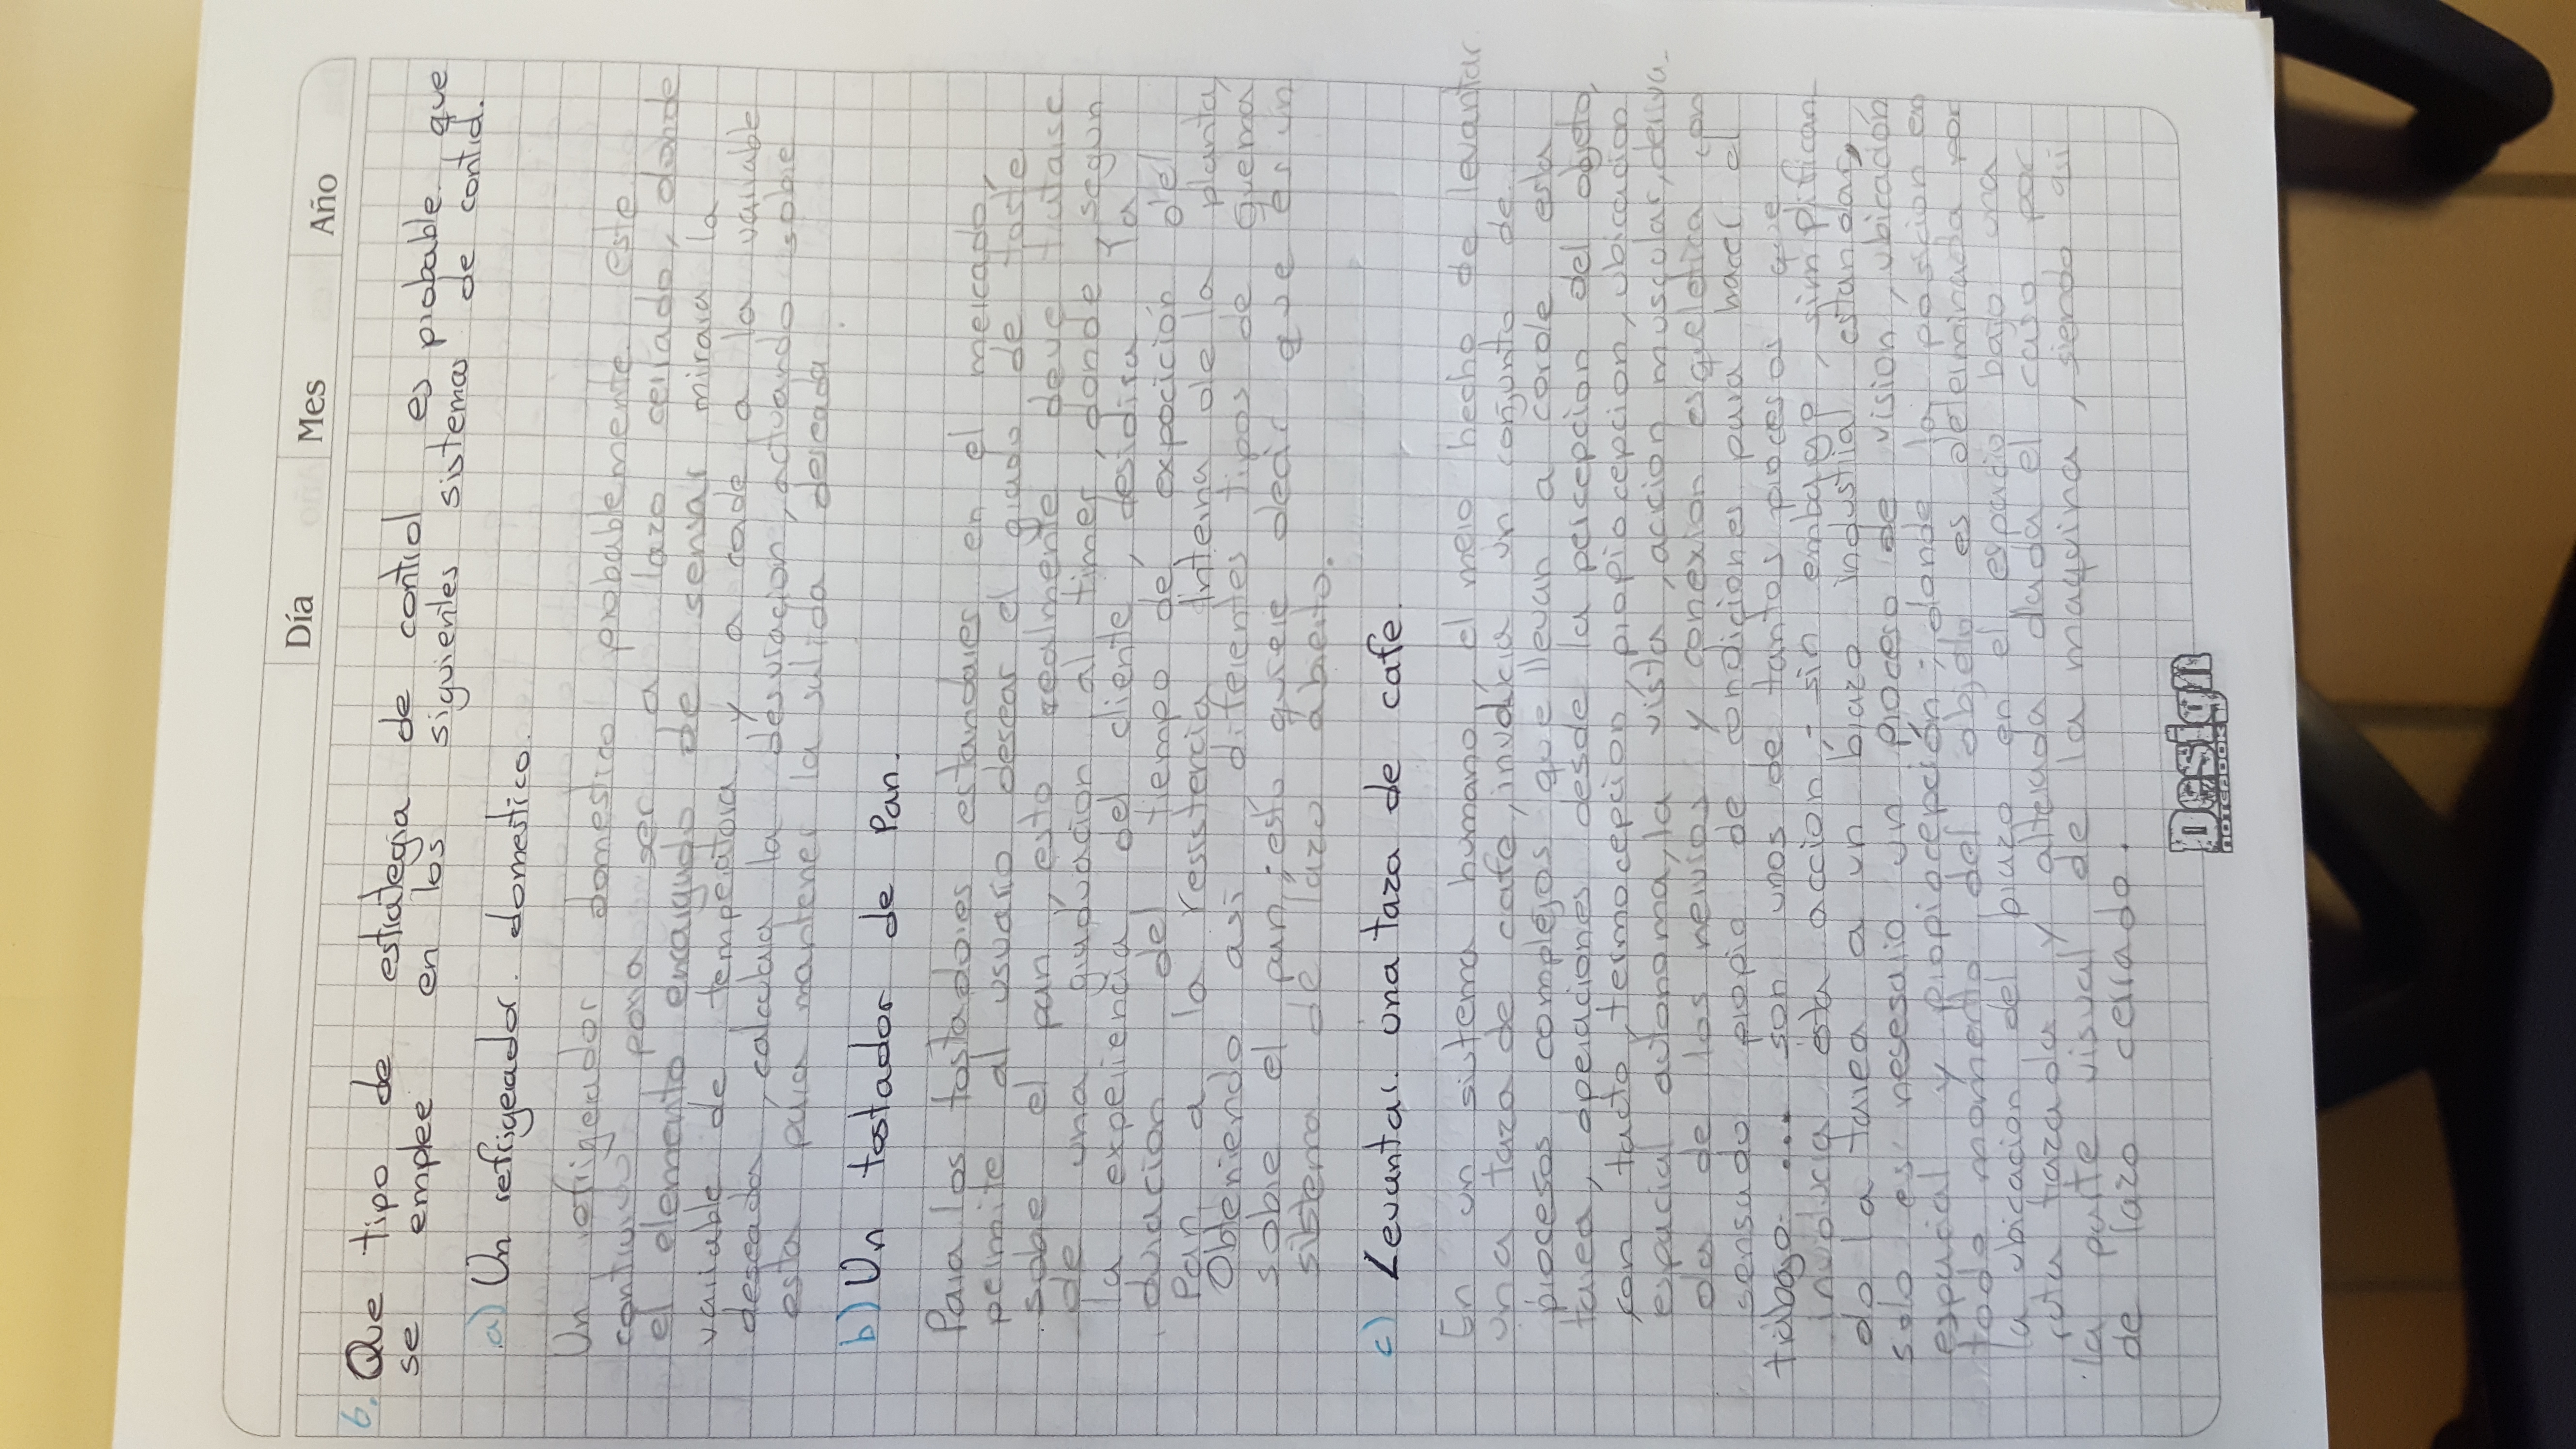 Día Mes Año
6. Que tipo de estrategia de control es probable que
se emplee en los siguientes sistemas de control.
a) Un refrigerador. domestico.
Un refrigerador domestico probablemente este
para ser a lazo cerrado, donde
el elemento encargado de sensar mirara la
variable de temperatura y a corde a la variable
deseada, calculara la desviacion, actuando sobre
esta para mantener la salida deseada.
b) Un tostador de Pan.
Para los tostadores estandares en el mercado,
permite al usuario desear el grado de toste
sobre el pan, esto realmente deve tratarse
de una graduacion al timer, donde, segun
la experiencia del cliente, desidira la
duracion del tiempo de expocición del
Pan a la resistencia interna de la planta,
Obteniendo asi diferentes tipos de quema
sobre el pan; esto quiere decir que es un
sistema de lazo abierto.
c) Levantar. una taza de cafe.
En un sistema humano, el mero hecho de levantar
una taza de cafe, involucra un conjunto de
procesos complejos que llevan a corde esta
tarea, operaciones desde la percepcion del objeto,
con tacto, termocepcion, propiocepcion, ubicacion
espacial autonoma, la vista, accion muscular, deriva-
da de los nervios y conexion esqueletica con
sensado propio de condiciones para hacer el
trabajo ... son unos de tantos procesos que
involucra esta accion, sin embargo, simplifican
do la tarea a un brazo industrial estandar,
solo es nesesario un proceso de vision, ubicación
espacial y propiocepción; donde la posicion en
todo momento del objeto es determinada por
la ubicacion del brazo en el espacio bajo una
ruta trazada y alterada dada el caso por
la parte visual de la maquina, siendo asi
de lazo cerrado.
Design
NOTEBOOK